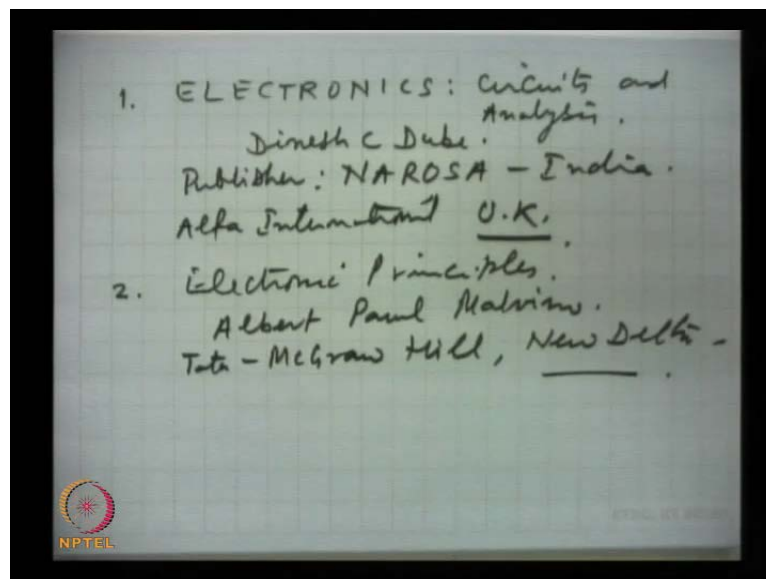 1. ELECTRONICS: Circuits and
Analysis.
Dinesh C Dube.
Publisher: NAROSA – India.
Alfa International U.K.
2. Electronic Principles.
Albert Paul Malvino.
Tata – McGraw Hill, New Delhi –
NPTEL